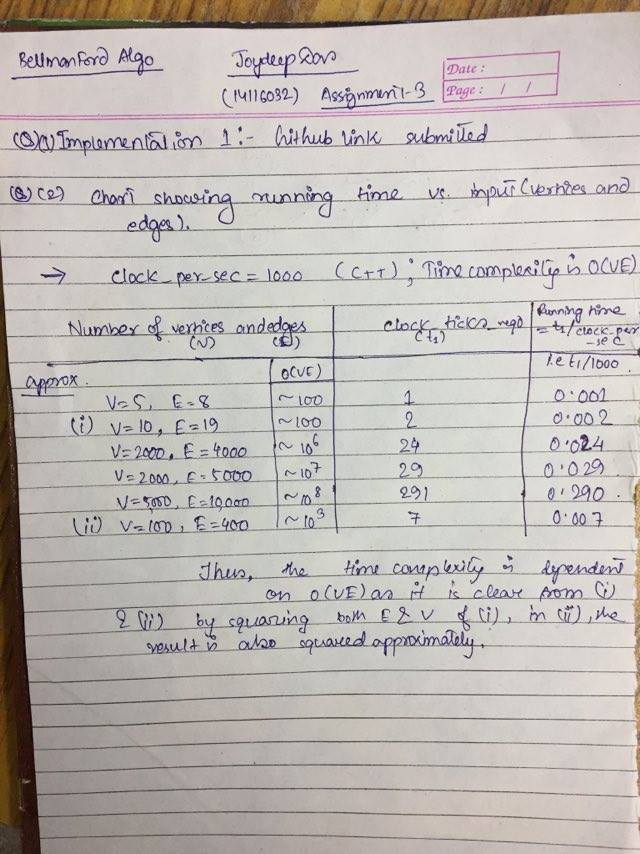 BellmanFord Algo Joydeep Das
(14116032) Assignment-3
Date :
Page : / /
(Q)(1) Implementation 1:- Github link submitted
(Q)(2) Chart showing running time vs. input (vertices and
edges).
→ clock_per_sec = 1000 (C++) ; Time complexity is O(VE)
Number of vertices and edges clock_ticks_reqd Running time
(V) (E) (t1) = t1/clock_per
-sec
approx. O(VE) i.e t1/1000
V=5, E=8 ~100 1 0.001
(i) V=10, E=19 ~100 2 0.002
V=2000, E=4000 ~10⁶ 24 0.024
V=2000, E=5000 ~10⁷ 29 0.029
V=5,000, E=10,000 ~10⁸ 291 0.290
(ii) V=100, E=400 ~10³ 7 0.007
Thus, the time complexity is dependent
on O(VE) as it is clear from (i)
& (ii) by squaring both E & V of (i), in (ii), the
result is also squared approximately.